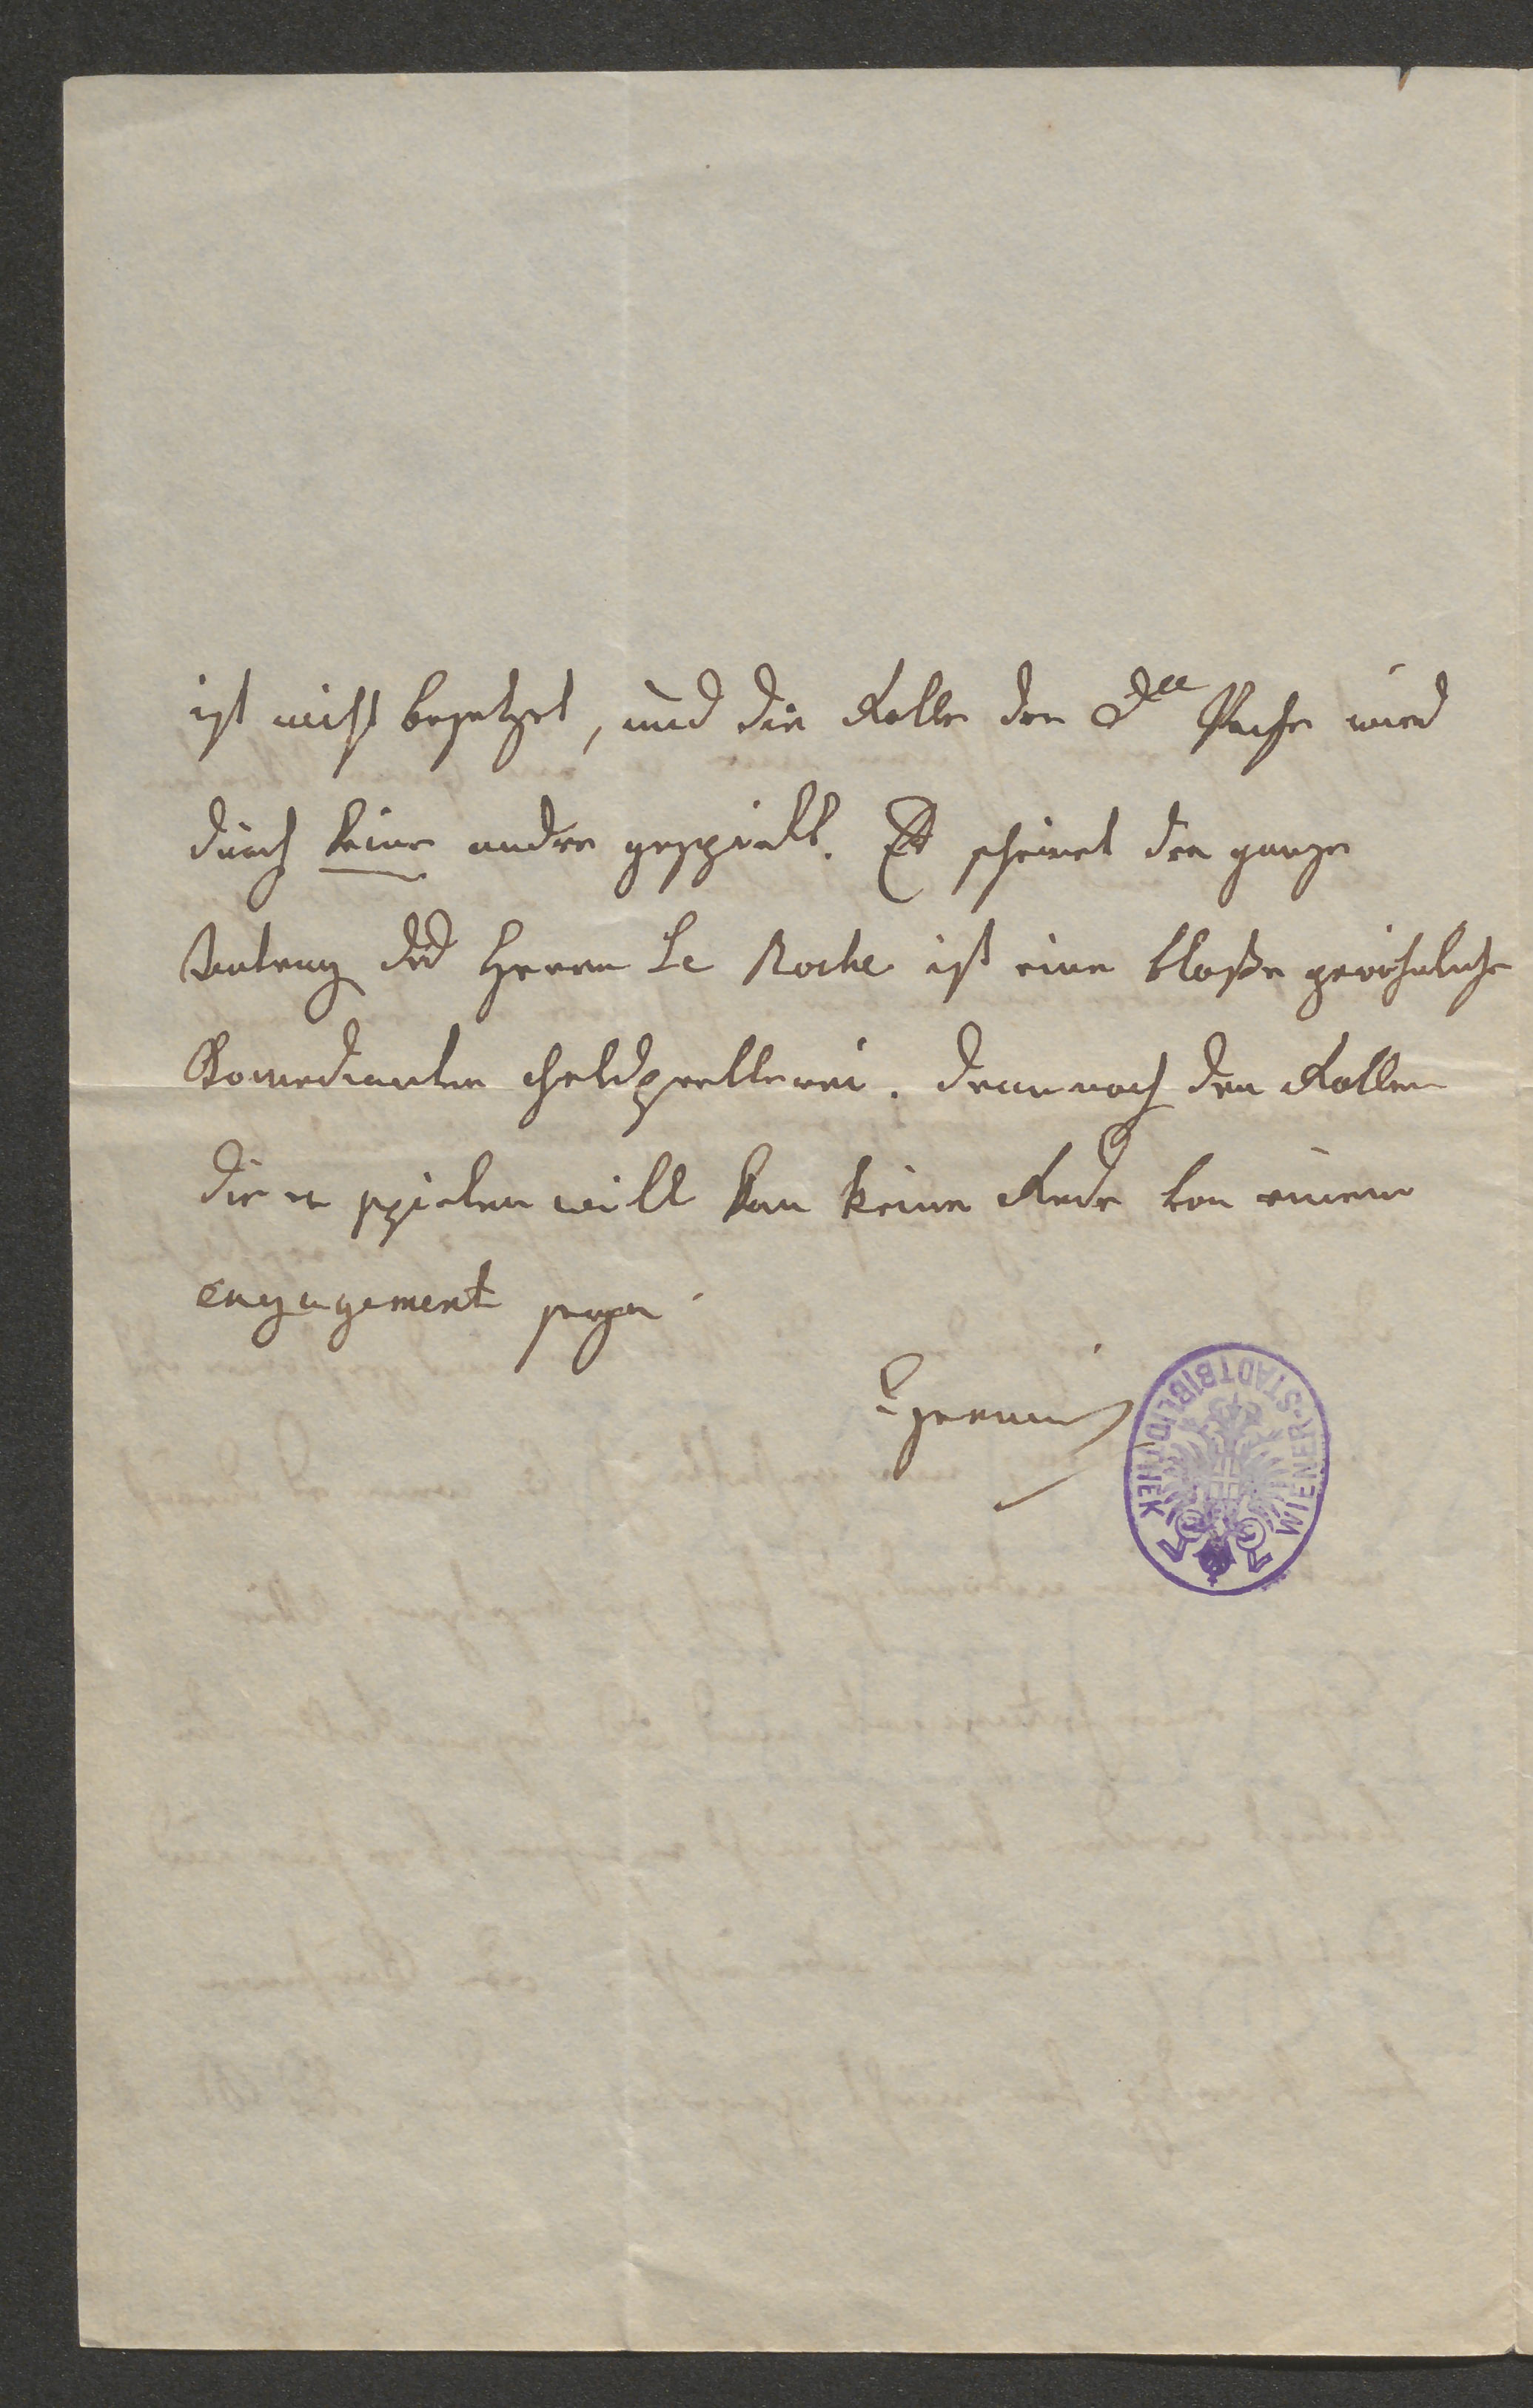 ist nicht besetzet, und die Rolle der Dlle Peche wird
durch keine andre gespielt. Es scheinet der ganze
Antrag des Herrn Le Roche ist eine bloße gewöhnliche
Komedianten Geldprellerei. Denn nach den Rollen
die er spielen will kan keine Rede von einem
engagement seyn
Czernin
WIENER-STADTBIBLIOTHEK